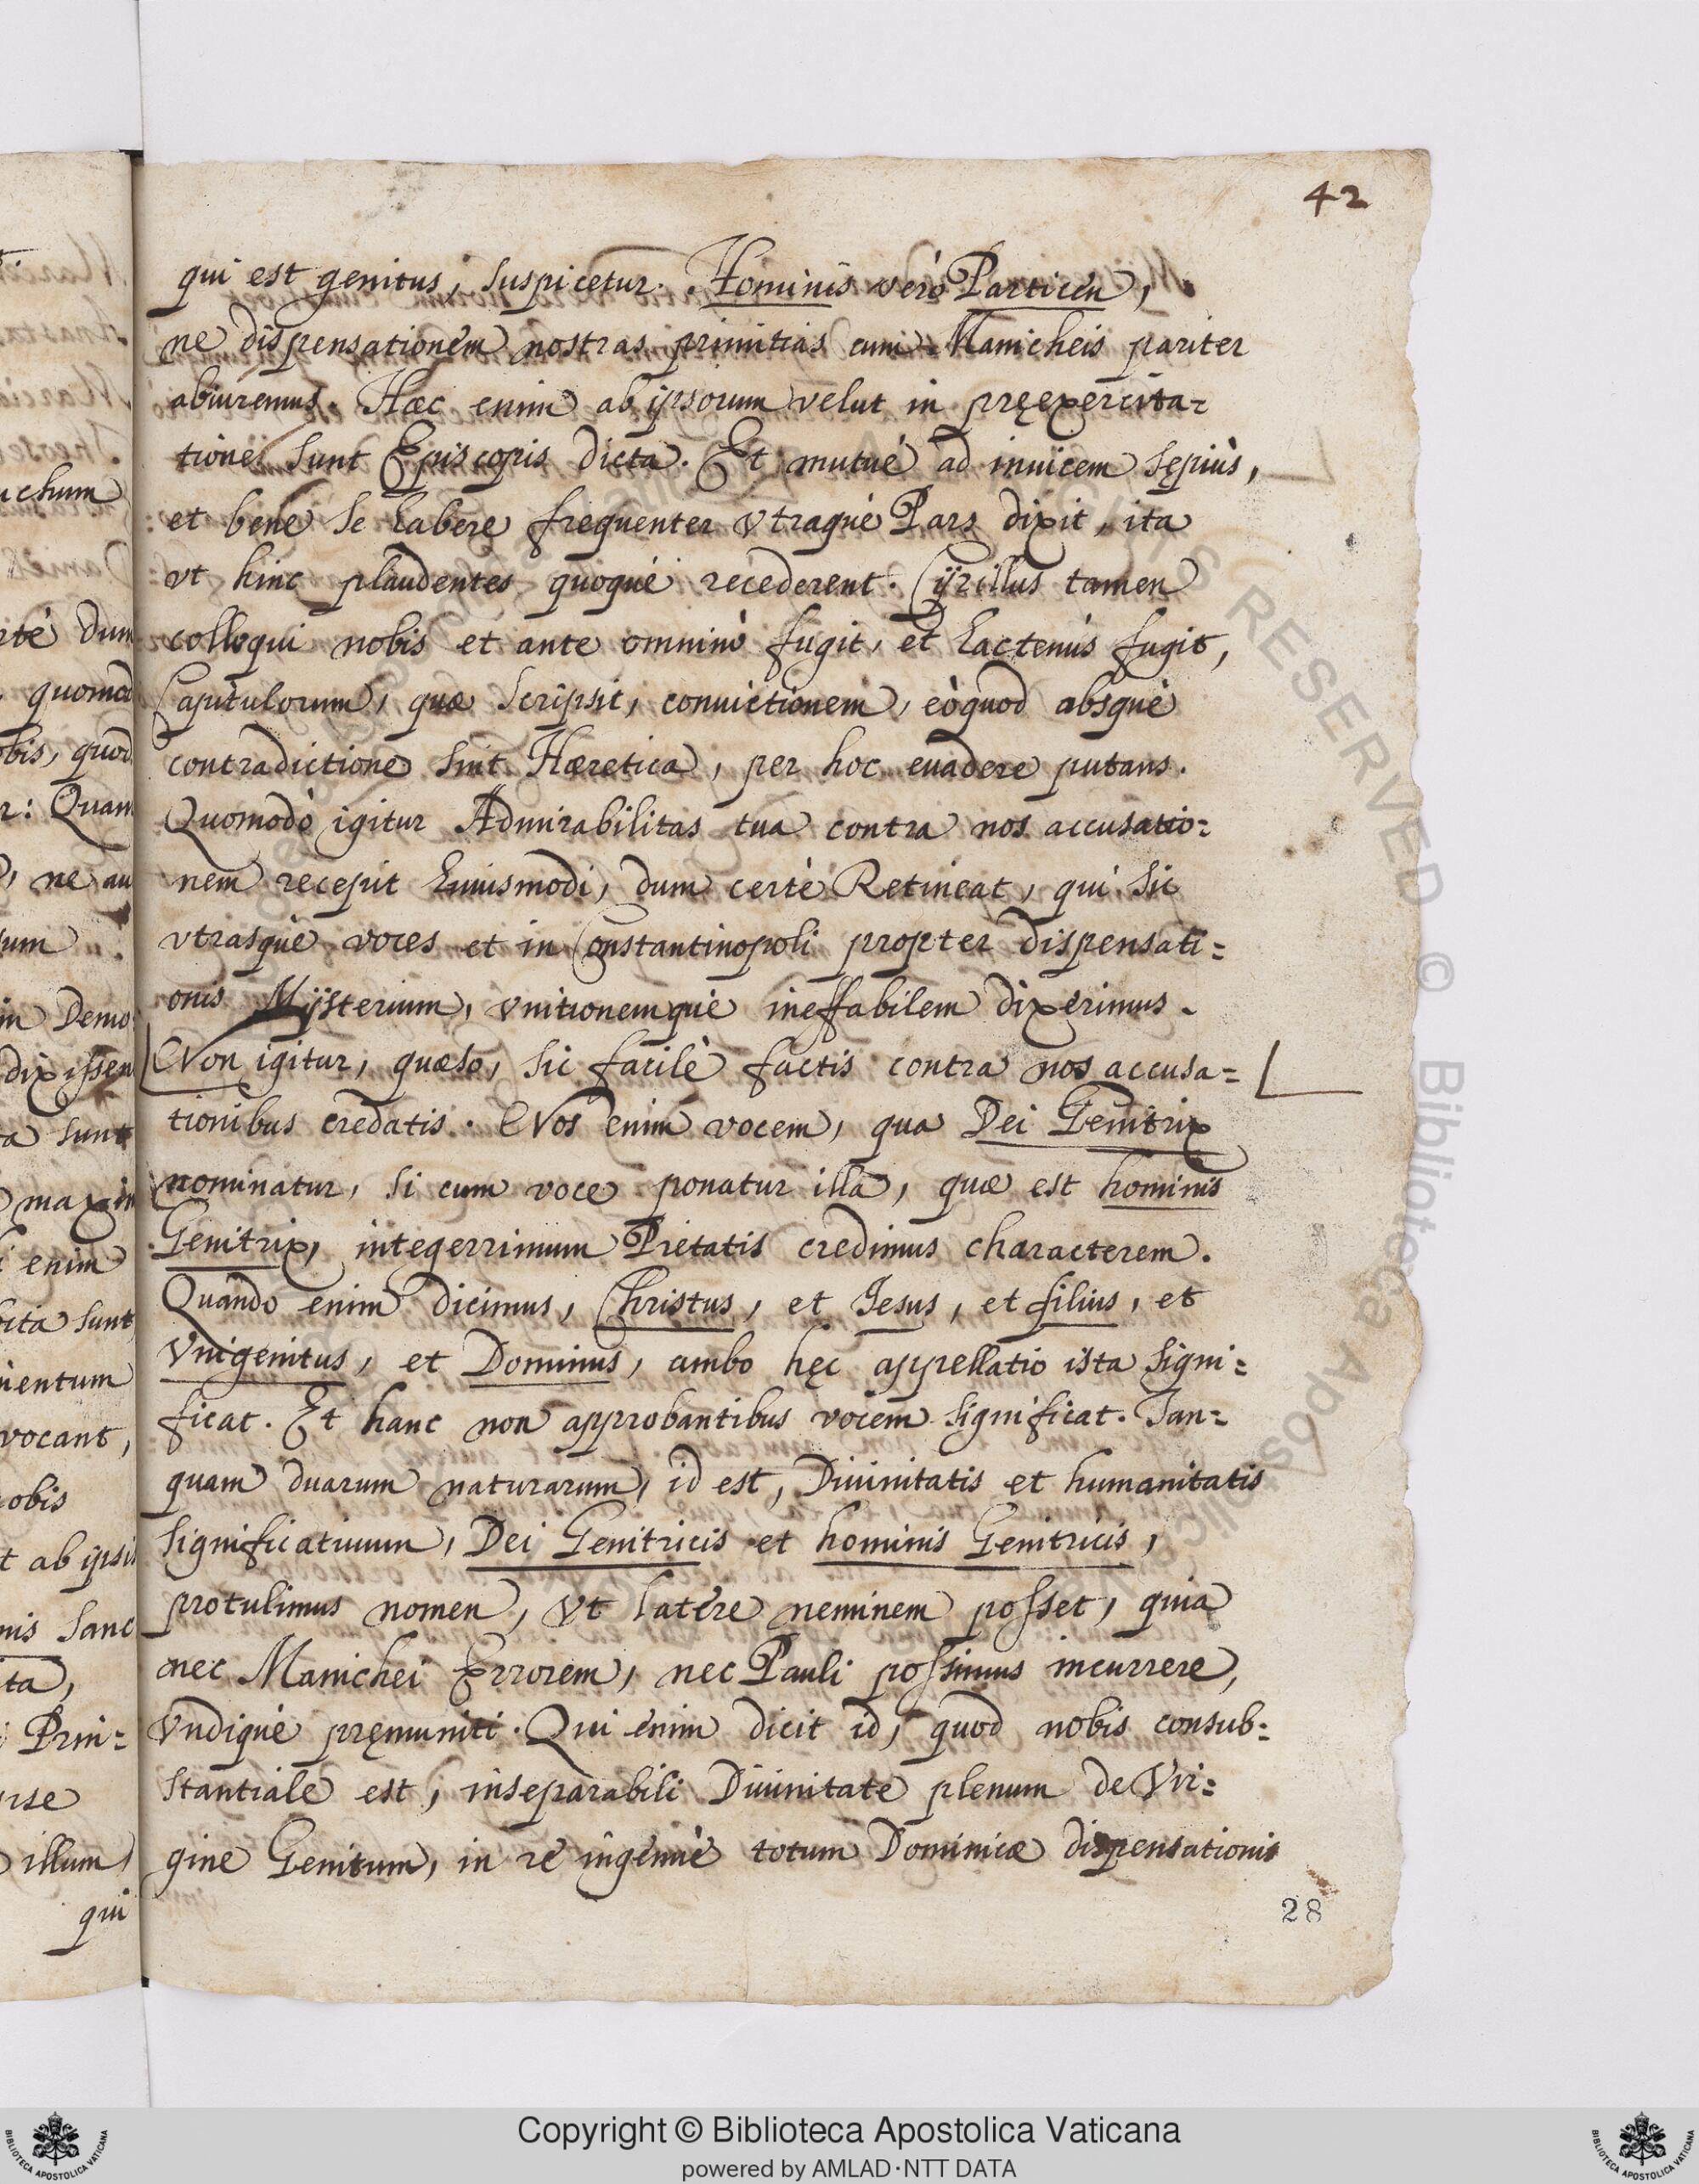 42
qui est genitus, suspicetur. Hominis verò Particeu,
ne dispensationem nostras primitias cum Manicheis pariter
abiuremus. Hæc enim ab ipsorum velut in pręexercita=
tione sunt Episcopis dicta. Et mutuè ad inuicem sępiùs,
et bene se habere frequenter vtraquè Pars dixit, ita
vt hinc plaudentes quoquè recederent. Cÿrillus tamen
colloqui nobis et ante omninò fugit, et hactenùs fugit,
Capitulorum, quæ scripsit, conuictionem, eòquod absquè
contradictione sint Hæretica, per hoc euadere putans.
Quomodò igitur Admirabilitas tua contra nos accusatio=
nem recepit huiusmodi, dum certè Retineat, qui sic
vtrasquè voces et in Constantinopoli propter dispensati=
onis Mÿsterium, vnitionemquè ineffabilem dixerimus.
Non igitur, quæso, sic facilè factis contra nos accusa=
tionibus credatis. Nos enim vocem, qua Dei Genitrix
nominatur, si cum voce ponatur illa, quæ est hominis
Genitrix, integerrimum Pietatis credimus characterem.
Quando enim dicimus, Christus, et Jesus, et filius, et
Vnigenitus, et Dominus, ambo hęc appellatio ista signi=
ficat. Et hanc non approbantibus vocem significat. Tan=
quam duarum naturarum, id est, Diuinitatis et humanitatis
significatiuum, Dei Genitricis et hominis Genitricis,
protulimus nomen, vt latere neminem posset, quia
nec Manichei Errorem, nec Pauli possimus incurrere,
vndiquè pręmuniti. Qui enim dicit id, quod nobis consub=
stantiale est, inseparabili Diuinitate plenum de Vir=
gine Genitum, in re ingenuè totum Dominicæ dispensationis
28
uchum
rtè dum
quomod
obis, quod
r: Quam
ne au
sum
in Demo
dixissen
ta sunt
maxim
i enim
cita sunt
mentum
vocant,
nobis
t ab ipsis
nis Sanc
ita,
Prin=
rse
illum,
qui
ALL RIGHTS RESERVED © Biblioteca Apostolica Vaticana
Copyright © Biblioteca Apostolica Vaticana
powered by AMLAD·NTT DATA
BIBLIOTECA APOSTOLICA VATICANA
BIBLIOTECA APOSTOLICA VATICANA